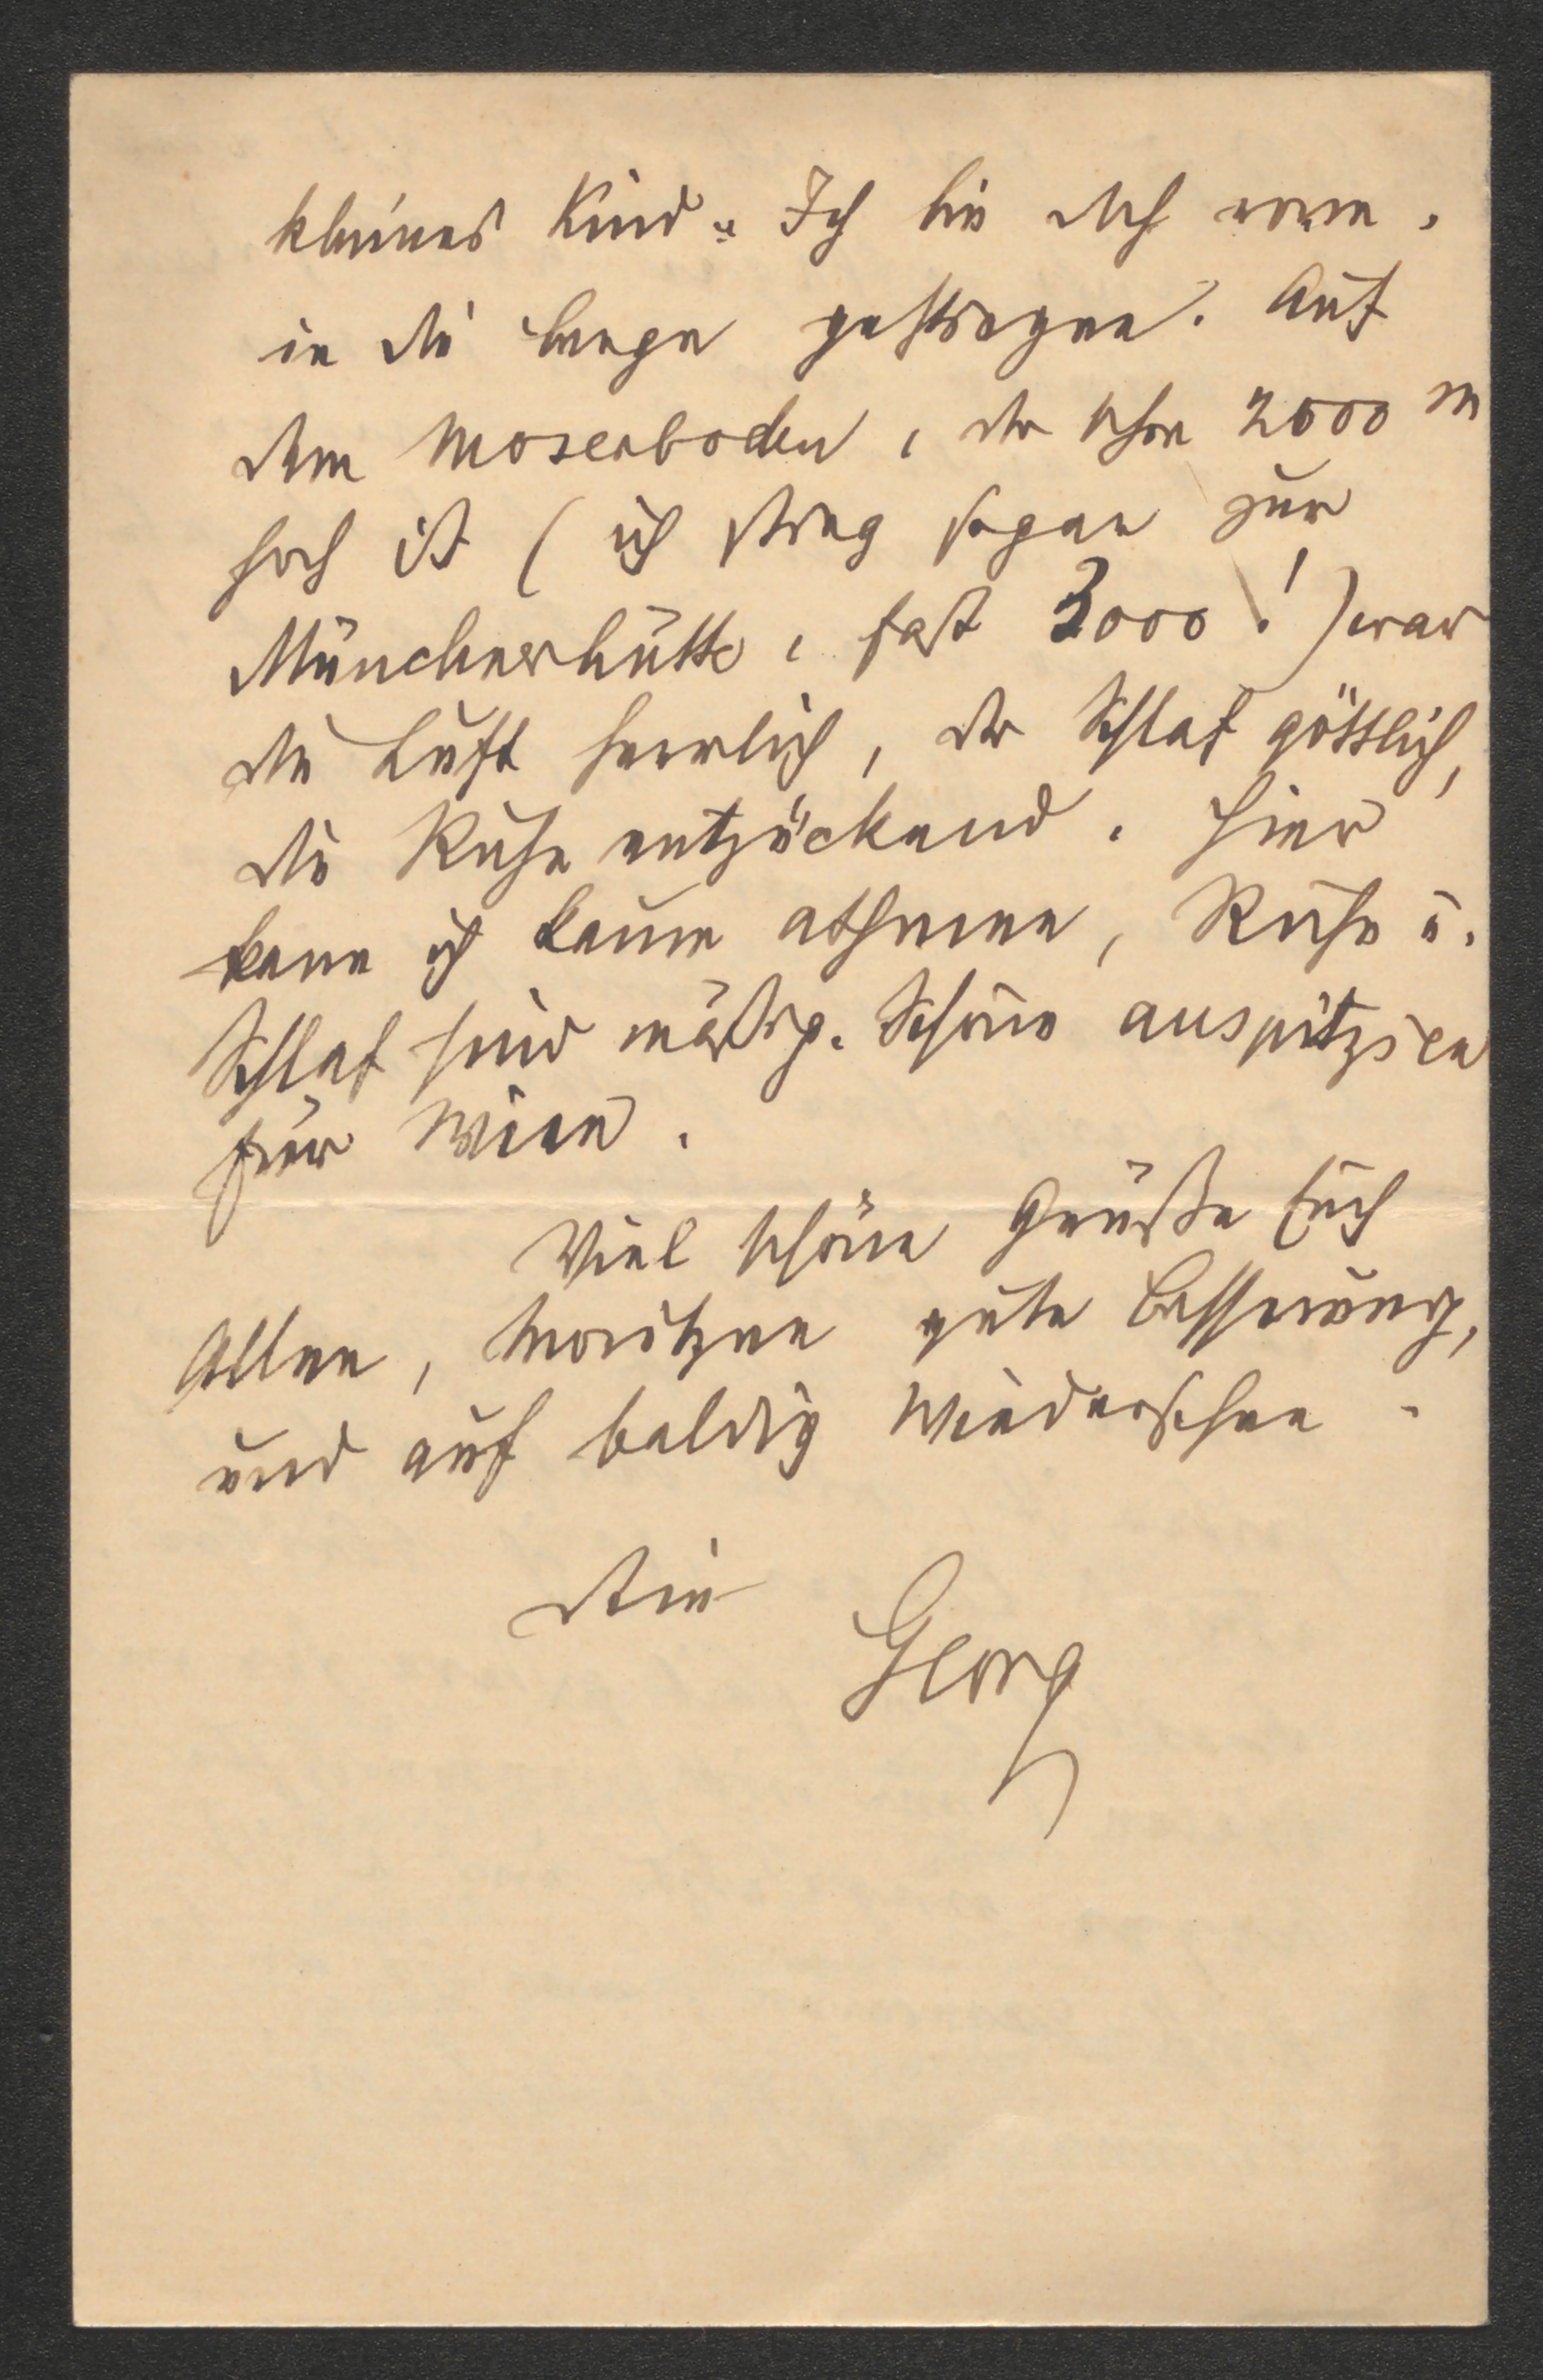 kleines Kind. Ich bin doch vorn.
in die Berge gestiegen. Auf
dem Moserboden, der schon 2000 m
hoch ist (ich stieg sogar zur
Münchnerhütte, fast 3000!) war
die Luft herrlich, der Schlaf göttlich,
die Ruhe entzückend. Hier
kann ich kaum athmen, Ruhe u.
Schlaf sind mäßig. Schöne auspitzien
für Wien.
Viel schöne Grüße Euch
Allen, Moritzen gute Besserung,
und auf baldig Wiedersehen.
Dein
Georg